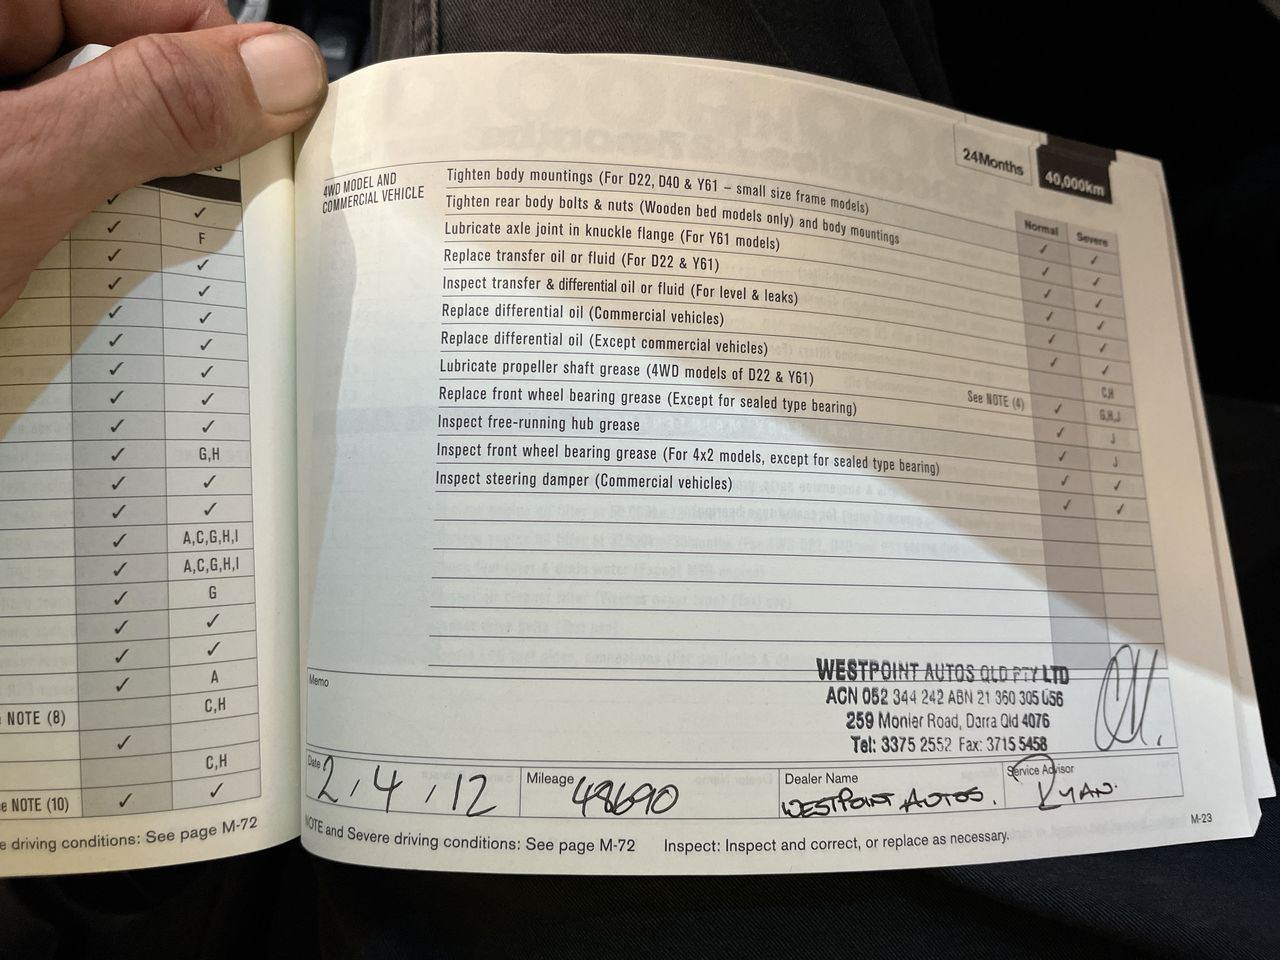 24Months
40,000km
4WD MODEL AND
COMMERCIAL VEHICLE
Normal Severe
Tighten body mountings (For D22, D40 & Y61 – small size frame models) ✓ ✓
Tighten rear body bolts & nuts (Wooden bed models only) and body mountings ✓ ✓
Lubricate axle joint in knuckle flange (For Y61 models) ✓ ✓
Replace transfer oil or fluid (For D22 & Y61) ✓ ✓
Inspect transfer & differential oil or fluid (For level & leaks) ✓ ✓
Replace differential oil (Commercial vehicles) ✓ ✓
Replace differential oil (Except commercial vehicles) C,H
Lubricate propeller shaft grease (4WD models of D22 & Y61) See NOTE (4) ✓ G,H,J
Replace front wheel bearing grease (Except for sealed type bearing) ✓ J
Inspect free-running hub grease ✓ J
Inspect front wheel bearing grease (For 4x2 models, except for sealed type bearing) ✓ ✓
Inspect steering damper (Commercial vehicles) ✓ ✓
Memo
WESTPOINT AUTOS QLD PTY LTD
ACN 052 344 242 ABN 21 360 305 056
259 Monier Road, Darra Qld 4076
Tel: 3375 2552 Fax: 3715 5458
Date 2, 4, 12
Mileage 48690
Dealer Name
WESTPOINT AUTOS.
Service Advisor
RYAN.
NOTE and Severe driving conditions: See page M-72 Inspect: Inspect and correct, or replace as necessary.
M-23
✓
✓ ✓
✓ F
✓ ✓
✓ ✓
✓ ✓
✓ ✓
✓ ✓
✓ ✓
✓ ✓
✓ G,H
✓ ✓
✓ ✓
✓ A,C,G,H,I
✓ A,C,G,H,I
✓ G
✓ ✓
✓ ✓
✓ A
NOTE (8) C,H
✓
C,H
NOTE (10) ✓ ✓
driving conditions: See page M-72